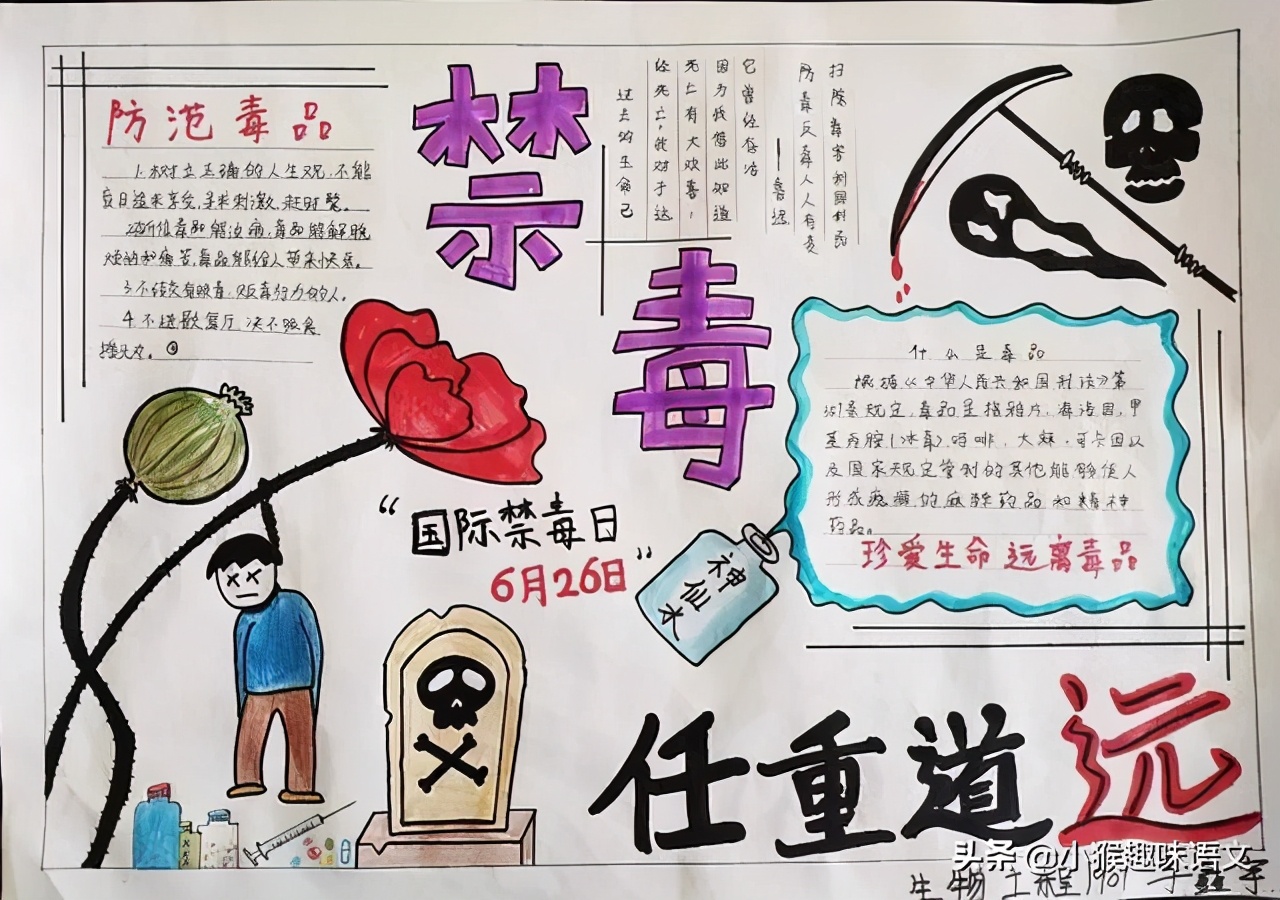 防范毒品
1.树立正确的人生观,不能
盲目追求享受,寻求刺激,赶时髦。
毒品能解脱
烦恼和痛苦,毒品能给人带来快乐。
3.不结交有吸毒、贩毒行为的人。
4.不进歌 厅 决不吸食
摇头丸。④
禁毒
扫除毒害利国利民
防毒反毒人人有责
——鲁迅
它曾经存活
因为我借此知道
死亡有大欢喜,
经死亡,我对于达
过去的生命已
什么是毒品
根据《中华人民共和国刑法》第
规定,毒品是指鸦片,海洛因,甲
基苯丙胺(冰毒)吗啡,大麻,可卡因以
及国家规定管制的其他能够使人
形成瘾癖的麻醉药品和精神
药品。
珍爱生命 远离毒品
“国际禁毒日
6月26日”
神仙水
任重道远
头条 @小猴趣味语文
生物工程1901